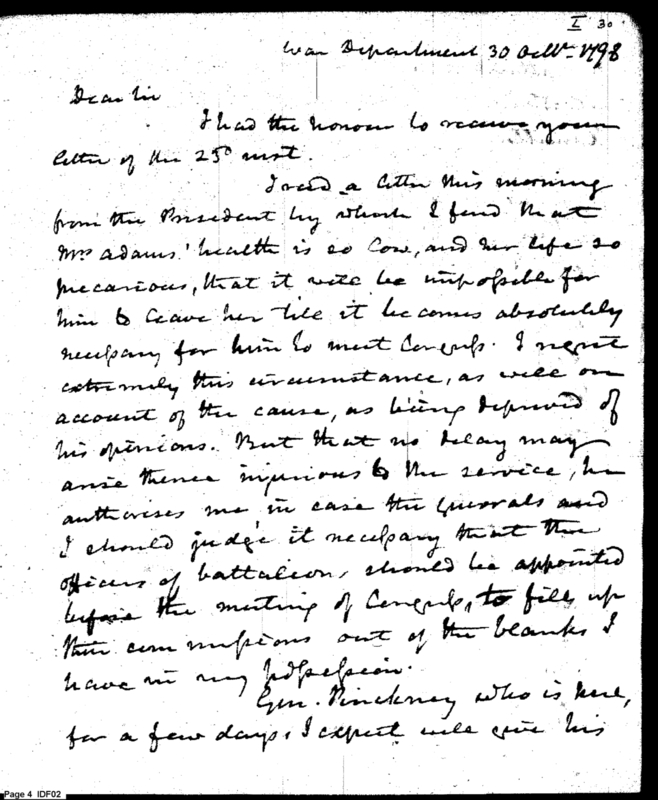 I 30
War Department 30 Octbr. 1798
Dear Sir
I had the honour to receive your
letter of the 25th inst.
I recd a letter this morning
from the President by which I find that
Mrs Adams' health is so low, and her life so
precarious, that it will be impossible for
him to leave her till it becomes absolutely
necessary for him to meet Congress. I regret
extremely this circumstance, as well on
account of the cause, as being deprived of
his opinions. But that no delay may
arise thence injurious to the service, he
authorises me in case the Generals and
I should judge it necessary that the
officers of battalion, should be appointed
before the meeting of Congress, to fill up
their commissions out of the blanks I
have in my possession.
Gen. Pinckney who is here,
for a few days, I expect will give his
Page 4 IDF02